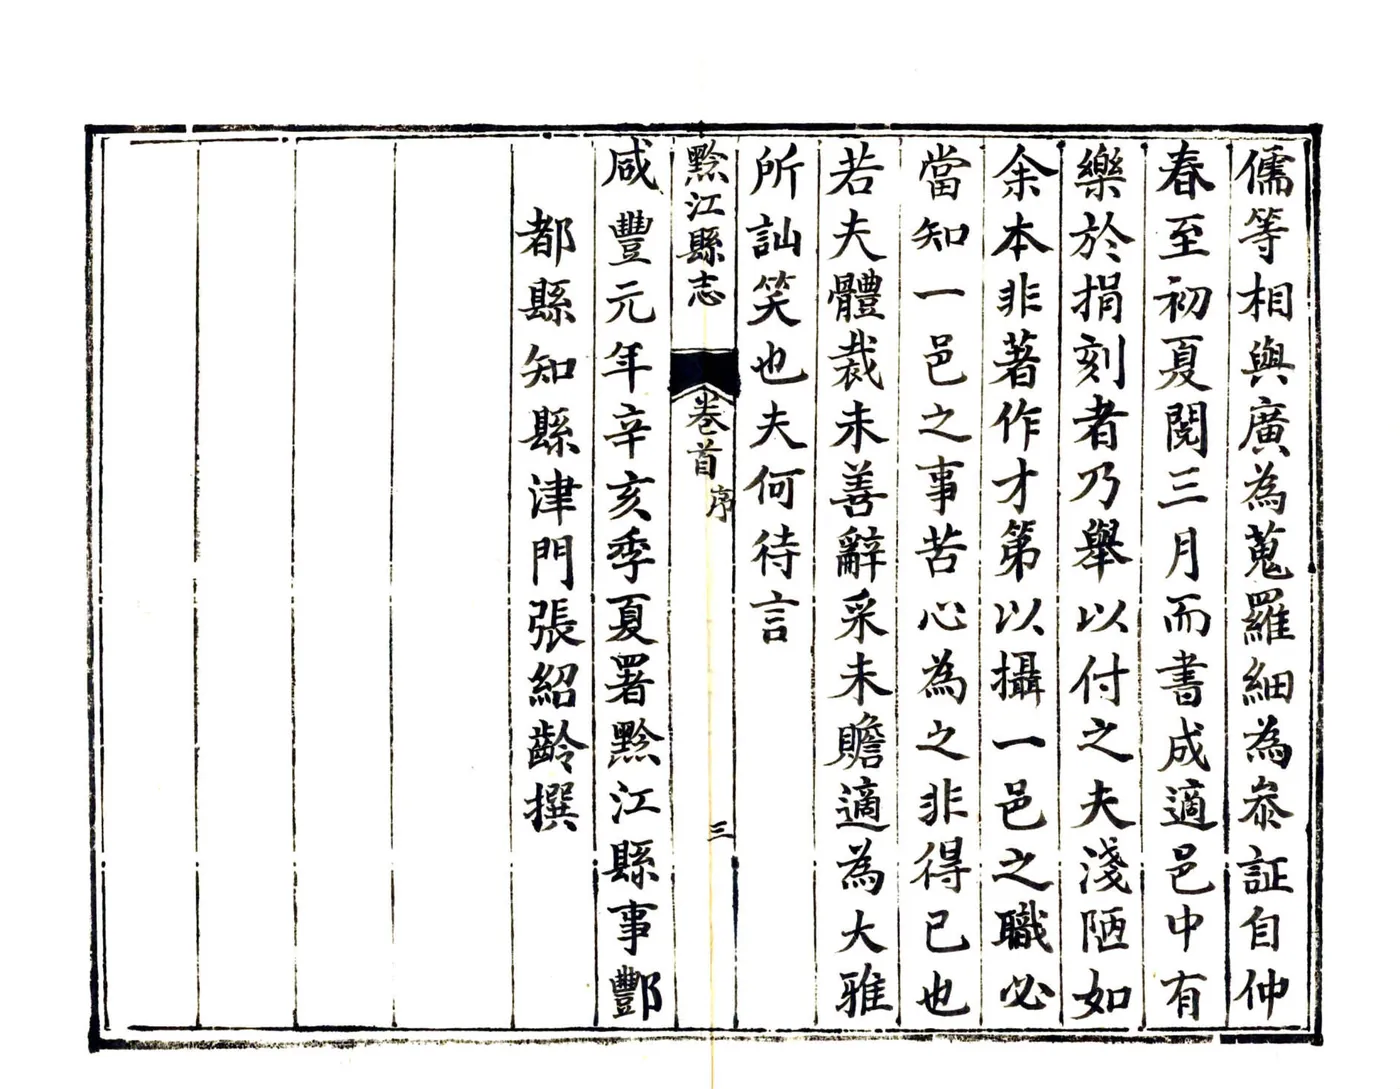 儒等相與廣為蒐羅細為叅証自仲
春至初夏閱三月而書成適邑中有
樂於捐刻者乃舉以付之夫淺陋如
余本非著作才第以攝一邑之職必
當知一邑之事苦心為之非得已也
若夫體裁未善辭采未贍適為大雅
所訕笑也夫何待言
黔江縣志 卷首 序 三
咸豐元年辛亥季夏署黔江縣事酆
都縣知縣津門張紹齡撰